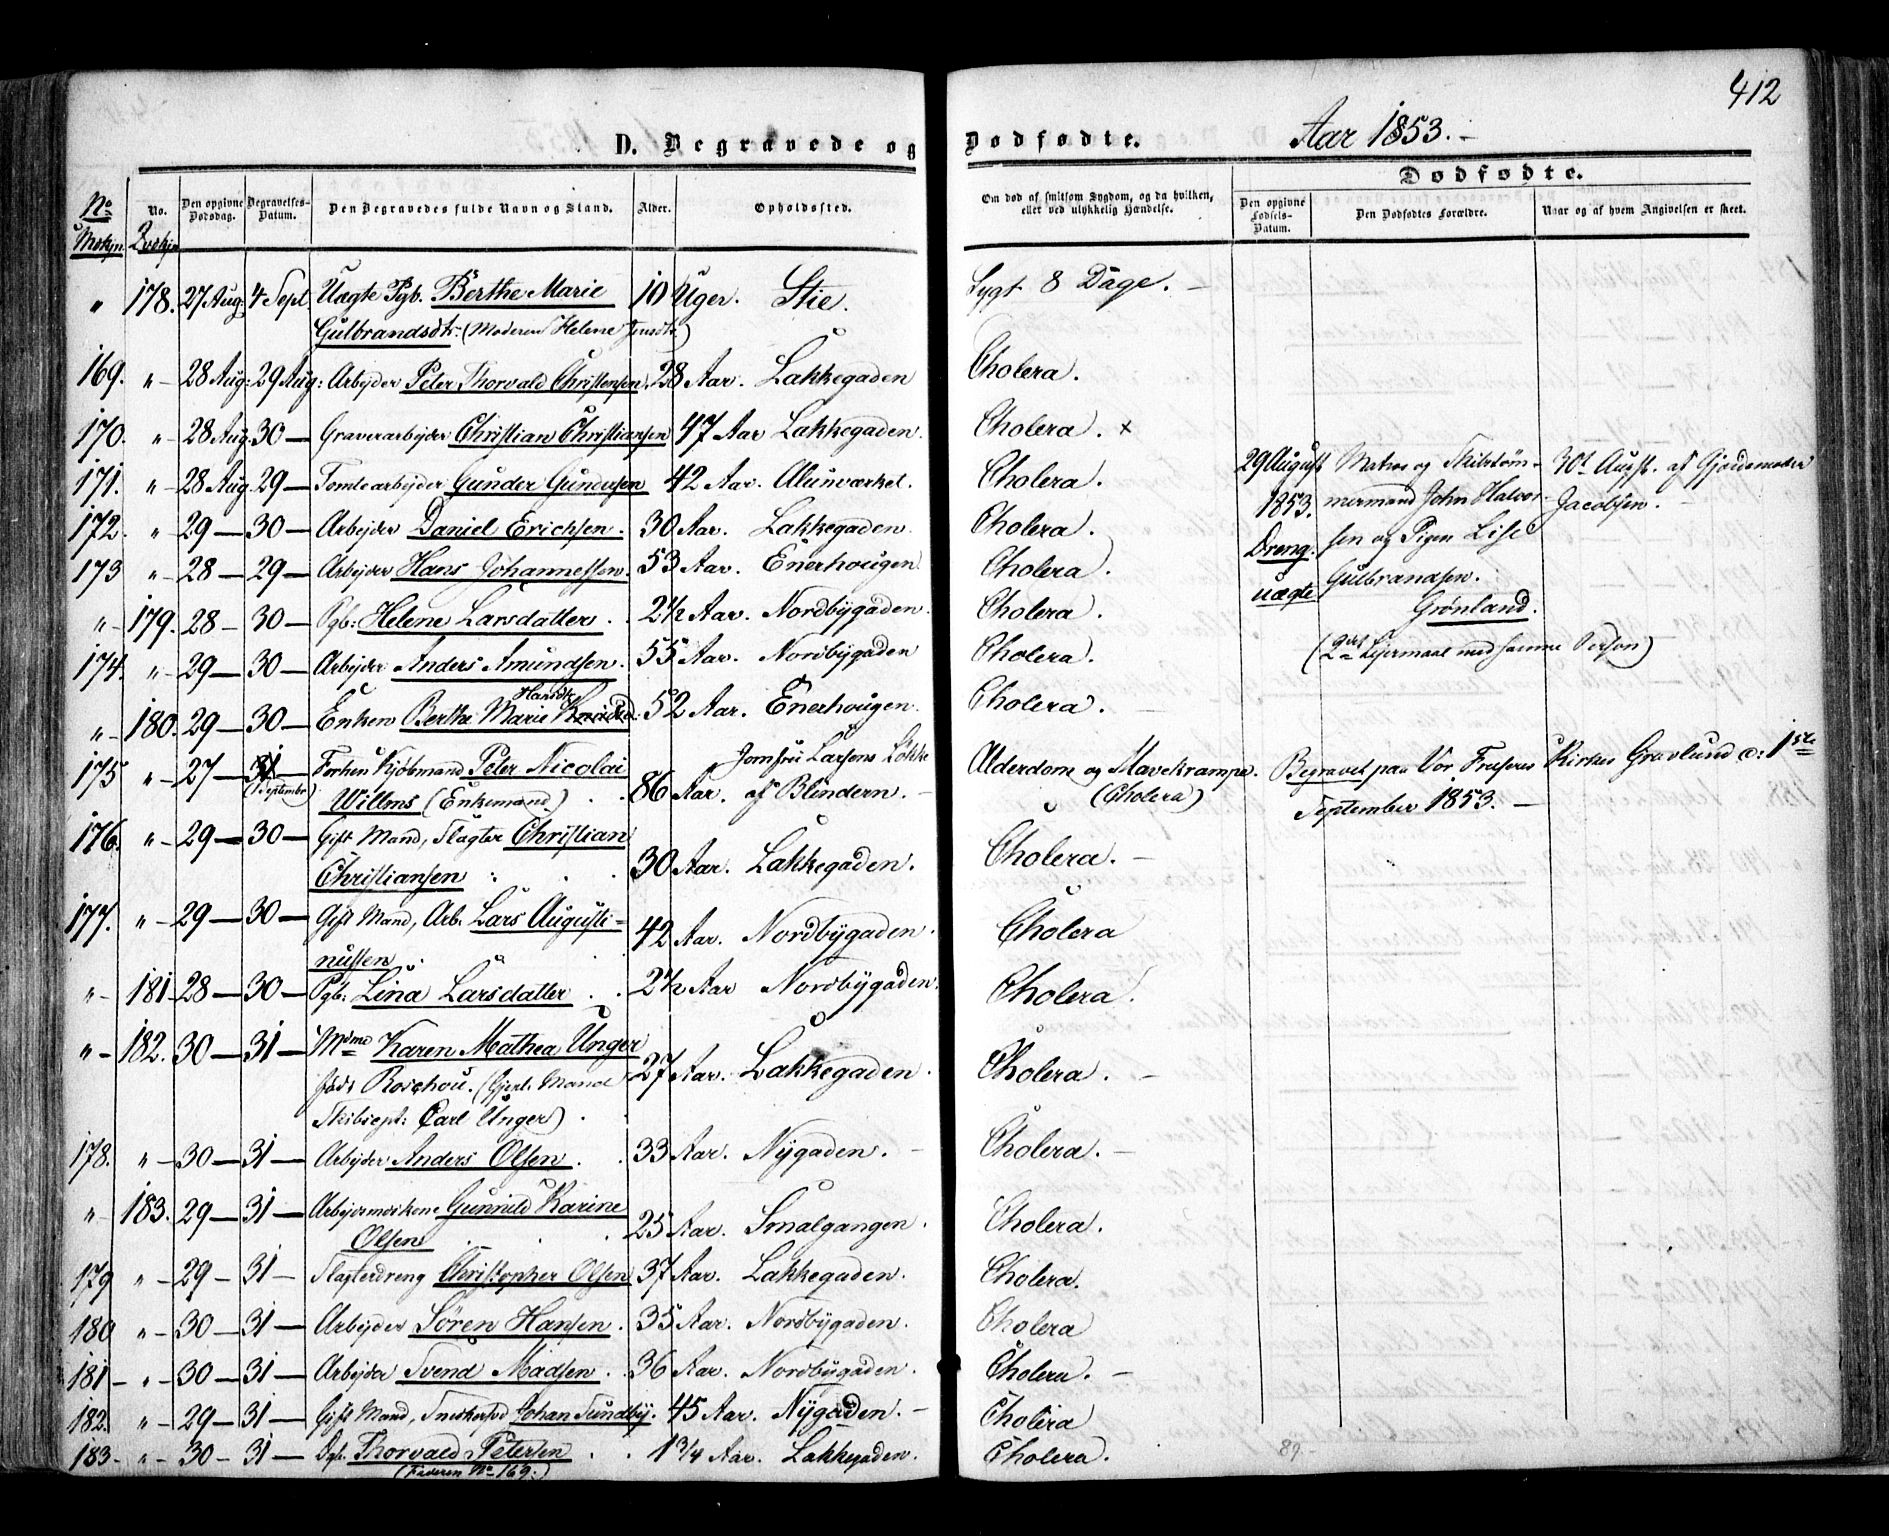 412
D. Begravede og Dødfødte. Aar 1853.-
No Mskjn.
No. Qvskjn
Den opgivne Dødsdag.
Begravelses-Datum.
Den Begravedes fulde Navn og Stand.
Alder.
Opholdssted.
Om død af smitsom Sygdom, og da hvilken, eller ved ulykkelig Hændelse.
Dødfødte.
Den opgivne Fødsels-Datum.
Den Dødfødtes Forældre.
Naar og af hvem Angivelsen er skeet.
" 178. 27 Aug: 4 Sept Uægte Pgb. Berthe Marie 10 Uger. Stie. Sygt 8 Dage. -
Gulbrandsdtr. (Moderen Helene Jensdtr)
169. " - 28 Aug: 29 Aug: Arbejder Peter Thorvald Christensen. 28 Aar. Lakkegaden Cholera.
170. " - 28 Aug. 30 - Graverarbejder Christian Christiansen 47 Aar Lakkegaden. Cholera. x
171. " - 28 Aug. 29 - Tomtearbejder Gunder Gundersen 42 Aar. Alunværket. Cholera.
172. " - 29 - 30 - Arbejder Daniel Erichsen. 30 Aar. Lakkegaden. Cholera.
173 " - 28 - 29 - Arbejder Hans Johannessen. 53 Aar. Enerhougen Cholera.
" - 179. 28 - 30 - Pgb: Helene Larsdatter. 2½ Aar. Nordbygaden. Cholera.
174. " - 29 - 30 - Arbejder Anders Amundsen. 55 Aar. Nordbygaden Cholera.
Hansdtr
" - 180. 29 - 30 - Enken Berthe Marie 52 Aar. Enerhougen. Cholera.
29 August Matros og Skibstøm- 30t Augst. af Gjordemoder
1853. mermand John Halvor- Jacobsen. -
Dreng. sen og Pigen Lise
uægte Gulbrandsen.
Grønland.
(2det Lejermaal med samme Person)
175 " - 27 - 31 - Forhen Kjøbmand Peter Nicolai Jomfru Larsens Løkke Alderdom og Mavekrampe. Begravet paa Vor Frelseres Kirkes Gravlund d: 1ste
(1 September) Willms (Enkemand) 86 Aar. af Blindern. - (Cholera) September 1853. -
176. " - 29 - 30 - Gift Mand, Slagter Christian
Christiansen 30 Aar. Lakkegaden. Cholera. -
177. " - 29 - 30 - Gift Mand, Arb. Lars Augusti-
nussen 42 Aar. Nordbygaden. Cholera
" - 181 - 28 - 30 - Pgb: Lina Larsdatter. 2½ Aar Nordbygaden. Cholera.
" - 182. 30 - 31 - Mdme Karen Mathea Unger
født Roschou. (Gjert. Mand 27 Aar. Lakkegaden. Cholera. -
Skibscpt: Carl Unger)
178. " - 30 - 31 - Arbejder Anders Olsen. 33 Aar. Nygaden. - Cholera. -
" - 183. 29 - 31 - Arbejermdskone Gunnild Karine
Olsen 25 Aar. Smalgangen. Cholera.
179 " - 29 - 31 - Slagterdreng Christopher Olsen 37 Aar. Lakkegaden. Cholera.
180 " - 30 - 31 - Arbejder Søren Hansen. 35 Aar. Nordbygaden. Cholera
181 - " - 30 - 31 - Arbejder Svend Madsen. 36 Aar. Nordbygaden. Cholera. -
182. " - 29 - 31 - Gift Mand, Snedkersvd Johan Sundby. 45 Aar. Nygaden. - Cholera
183 - " - 30 - 31 - Dgb. Thorvald Petersen 1¾ Aar. Lakkegaden. Cholera.
(Faderen No 169.)
89-